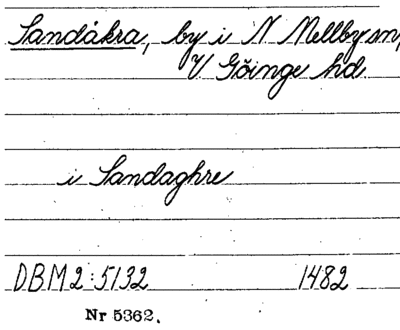 Sandåkra, by i N Mellby sn,
V Göinge hd.
i Sandaghre
DBM 2:5132 1482
Nr 5362.